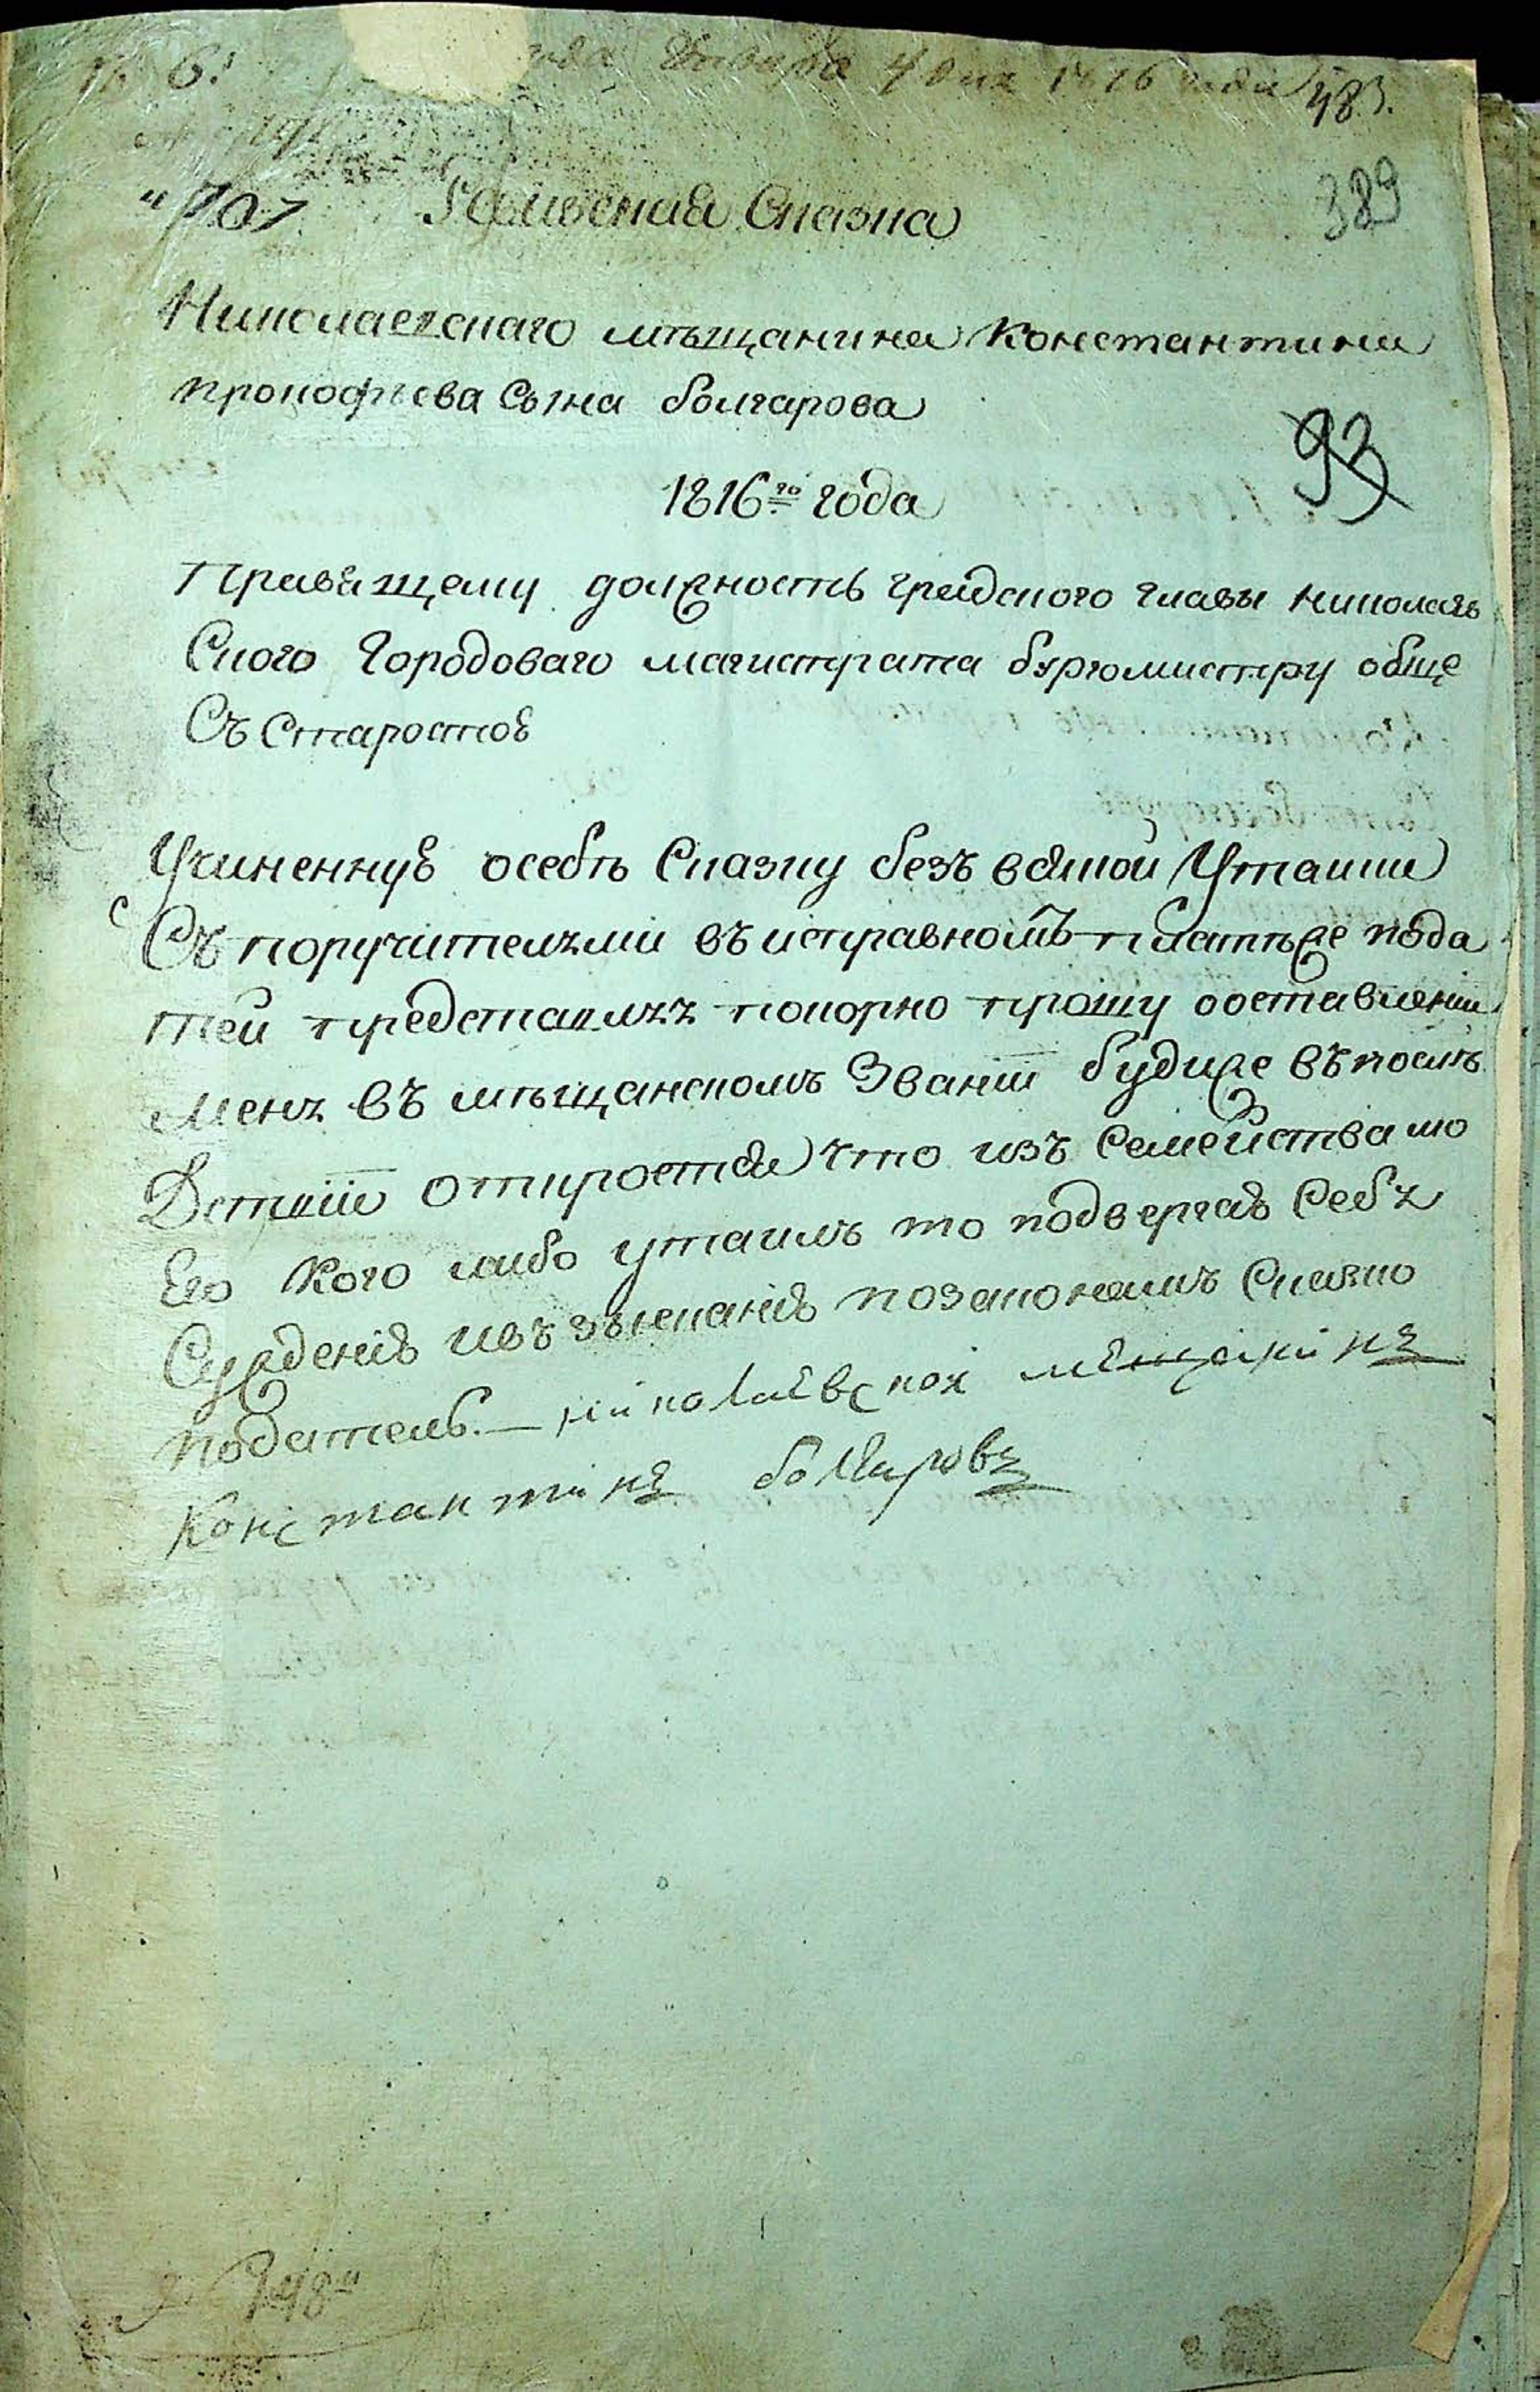 4 дня 1816 года
483.
"707
389
Ревизская Сказка
Николаевскаго мѣщанина Константина
Прокофьева Сына болгарова
93
1816го года
Правящему должность градского главы николаев
Ского Городоваго магистрата бургомистру обще
Съ Старостою
Учиненную о себѣ Сказку безъ всякой Утайки
Съ поручителями въ исправномъ платѣже пода
тей представляя покорно прошу оставленіи
меня въ мѣщанскомъ Званіи будиже въпослѣ
Дствіи откроется что изъ Семейства мо
Его Кого либо утаилъ то подвергаю Себя
Сужденію и взысканію по законамъ Сказко
податель. — николаевской мещанинъ
Константинъ болгаровъ
748